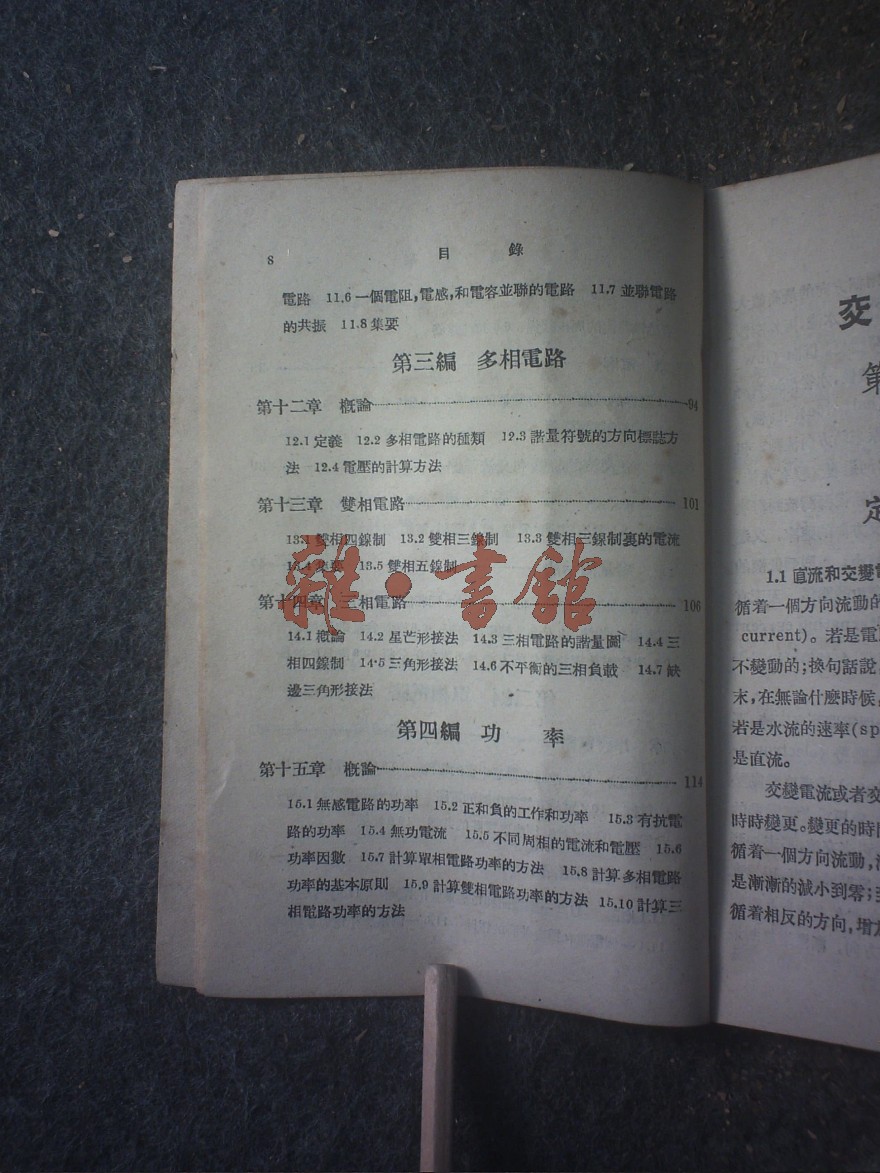 8
目 錄
電路 11.6 一個電阻,電感,和電容並聯的電路 11.7 並聯電路
的共振 11.8 集要
第三編 多相電路
第十二章 概論 94
12.1 定義 12.2 多相電路的種類 12.3 諧量符號的方向標誌方
法 12.4 電壓的計算方法
第十三章 雙相電路 101
13.1 雙相四線制 13.2 雙相三線制 13.3 雙相三線制裏的電流
13.4 集要 13.5 雙相五線制
第十四章 三相電路 106
14.1 概論 14.2 星芒形接法 14.3 三相電路的諧量圖 14.4 三
相四線制 14.5 三角形接法 14.6 不平衡的三相負載 14.7 缺
邊三角形接法
第四編 功 率
第十五章 概論 114
15.1 無感電路的功率 15.2 正和負的工作和功率 15.3 有抗電
路的功率 15.4 無功電流 15.5 不同周相的電流和電壓 15.6
功率因數 15.7 計算單相電路功率的方法 15.8 計算多相電路
功率的基本原則 15.9 計算雙相電路功率的方法 15.10 計算三
相電路功率的方法
雜·書館
交
第
定
1.1 直流和交變電
循着一個方向流動的
current)。若是電
不變動的;換句話說,
末,在無論什麼時候,
若是水流的速率(sp
是直流。
交變電流或者交
時時變更。變更的時
循着一個方向流動,
是漸漸的減小到零;
循着相反的方向,增